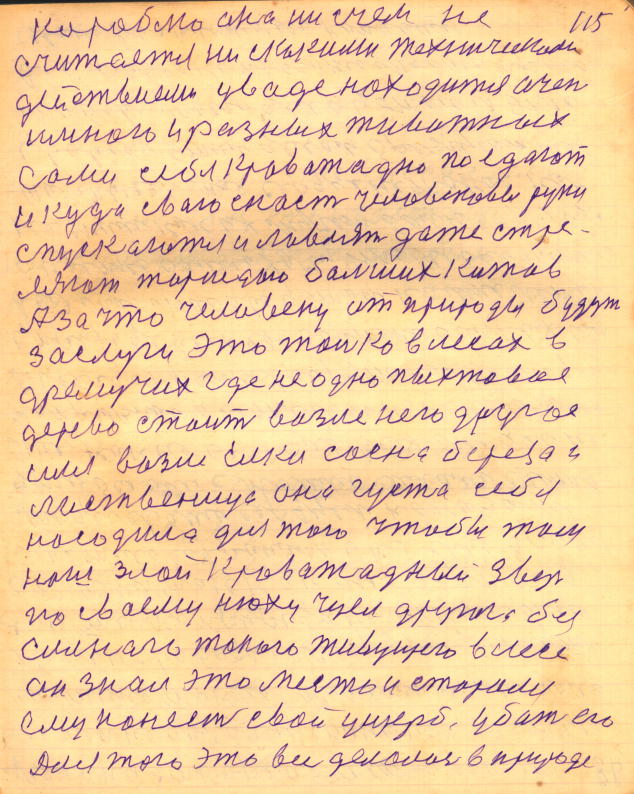 115
коробмо она ни счем не
считается ни скакими техническоми
действиеми уваде ноходится очен
и много и разных животных
Сами себя Кроважадно поедают
и куда сваю снаст человековы руки
спускаются и ловлят даже стре-
ляют торпедою балших Китов
А за что человеку от природы будут
заслуги Это толко в лесах в
дремучих где не одно пыхтовое
дерево стоит возле него другое
или возле ёлки сосна береза и
лиственица она густа себя
носодила для того чтобы тот
наш злой Кроважадный Звер
по своему нюху чуел другога без
силнаго токого живущего в лесе
он знал это место и старался
ему нонест свой ущерб. убат его
Для того это все делалос в природе